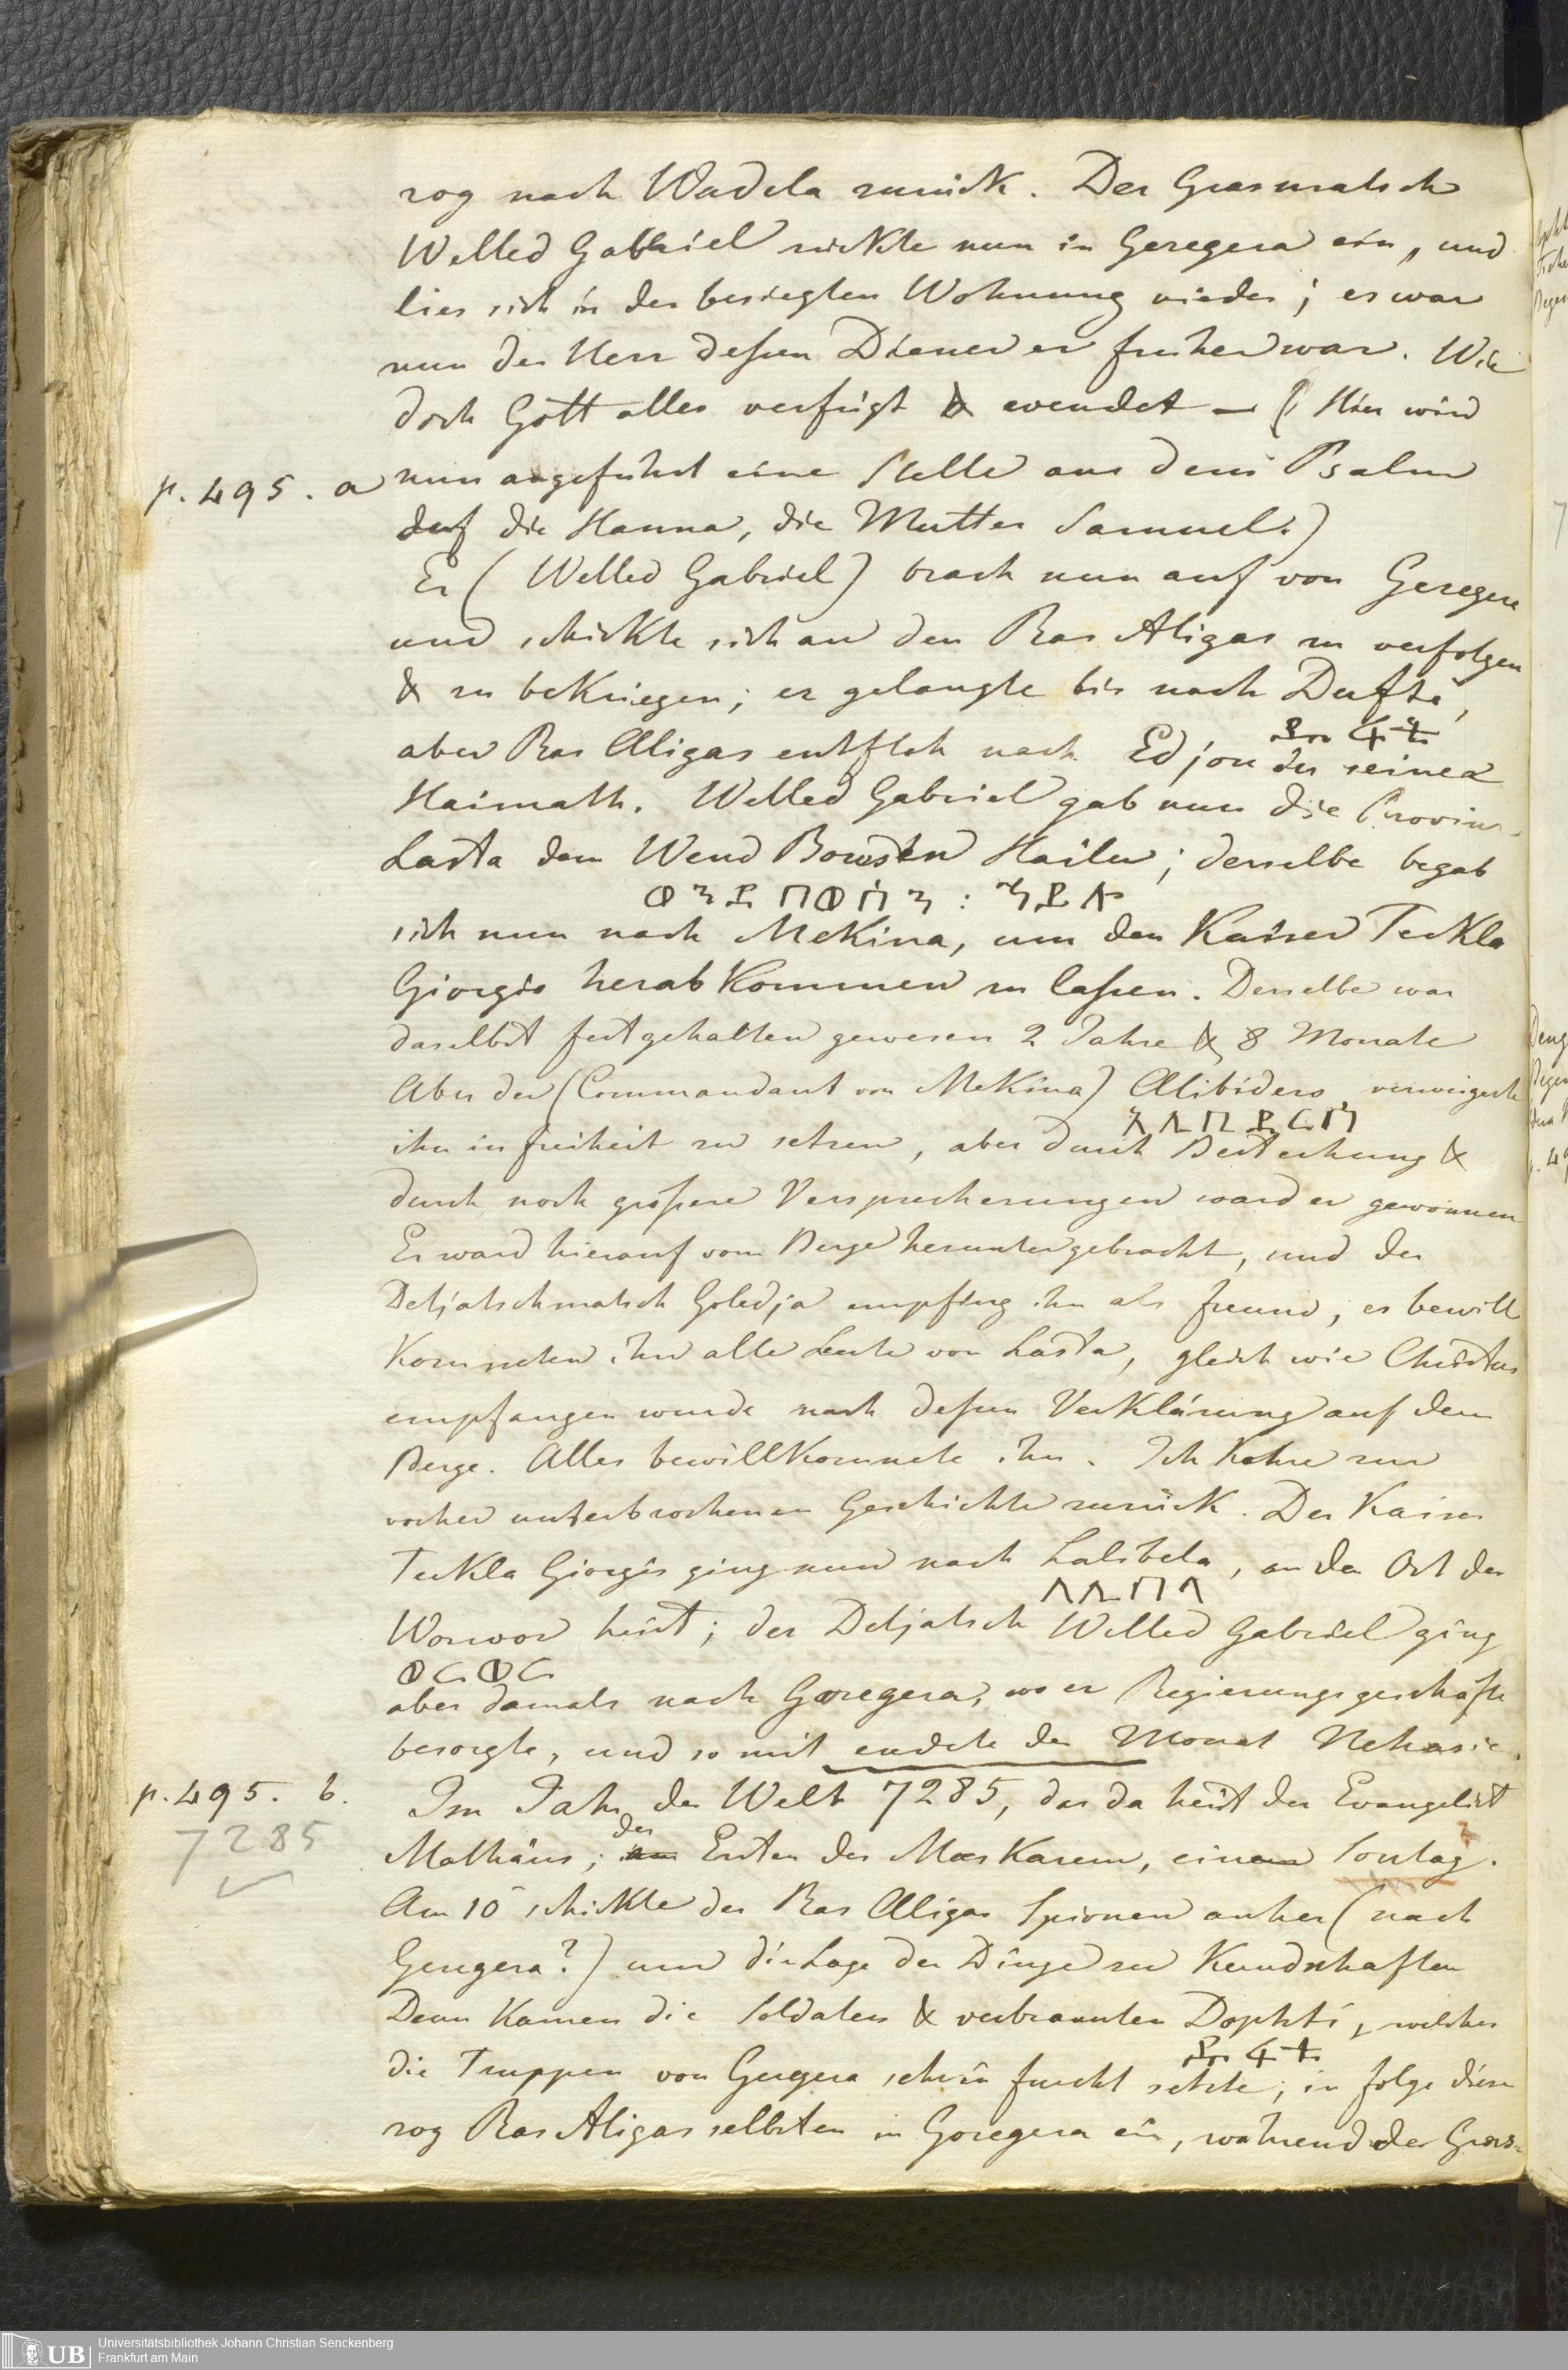 zog nach Wadela zurück. Der Grasmatsch
Welled Gabriel rückte nun in Geregera ein, und
lies sich in der besiegten Wohnung nieder; er war
nun der Herr deßen Diener er früher war. Wie
doch Gott alles verfügt & wendet — (Hier wird
p. 495. a nun angeführt eine Stelle aus dem Psalm
auf die Hanna, die Mutter Samuels.)
Er (Welled Gabriel) brach nun auf von Geregera
und schickte sich an den Ras Aligas zu verfolgen
& zu beKriegen; er gelangte bis nach Dafte,
ዲፍቲ
aber Ras Aligas entfloh nach Edjou der seiner
Haimath. Welled Gabriel gab nun die Provinz
Lasta dem Wend Bowsen Hailu; derselbe begab
ወንድ በወሰን : ኃይሉ
sich nun nach MeKina, um den Kaiser TecKla
Giorgis herabKommen zu laßen. Derselbe war
daselbst festgehalten gewesen 2 Jahre & 8 Monate
Aber der (Commandant von MeKina) Alibiders verweigerte
አሊቢድርስ
ihn in freiheit zu setzen, aber durch Bestechung &
durch noch größere Versprecherungen ward er gewonnen
Er ward hierauf vom Berge heruntergebracht, und der
Detjatschmatsch Goledja empfing ihn als freund, es bewill
Kommeten ihn alle Leute von Lasta, gleich wie Christus
empfangen wurde nach deßen VerKlärung auf dem
Berge. Alles bewillKommete ihn. Ich Kehre zur
vorher unterbrochenen Geschichte zurück. Der Kaiser
TecKla Giorgis ging nun nach Lalibela, an den Ort der
ላሊበላ
Worwor heist; der Detjatsch Welled Gabriel ging
ወርወር
aber damals nach Goregera, wo er Regierungsgeschäfte
besorgte, und so mit endete der Monat Nehasie.
p. 495. b. Im Jahr der Welt 7285, das da heist der Evangelist
7285
der
Mathäus; Ersten des MasKarem, ein Sontag.
Am 10 schickte der Ras Aligas Spionen anher (nach
Geregera?) um die Lage der Dinge zu Kundschaften
Denn Kamen die Soldaten & verbrannten Dophti, welches
ዲፍቲ
die Truppen von Gergera sehr in furcht setzte; in folge dieser
zog Ras Aligas selbsten in Goregera ein, während der Gras=
Universitätsbibliothek Johann Christian Senckenberg
Frankfurt am Main
UB